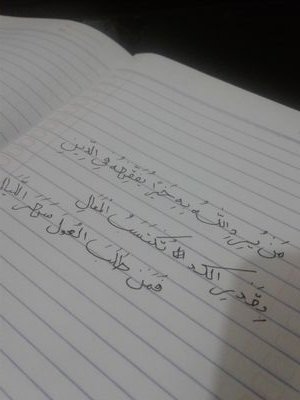 مَنْ يُرِدِ اللهُ بِهِ خَيْرًا يُفَقِّهْهُ فِي الدِّينِ
بِقَدْرِ الْكَدِّ تُكْتَسَبُ الْمَعَالِي
فَمَنْ طَلَبَ الْعُلَى سَهِرَ اللَّيَالِي